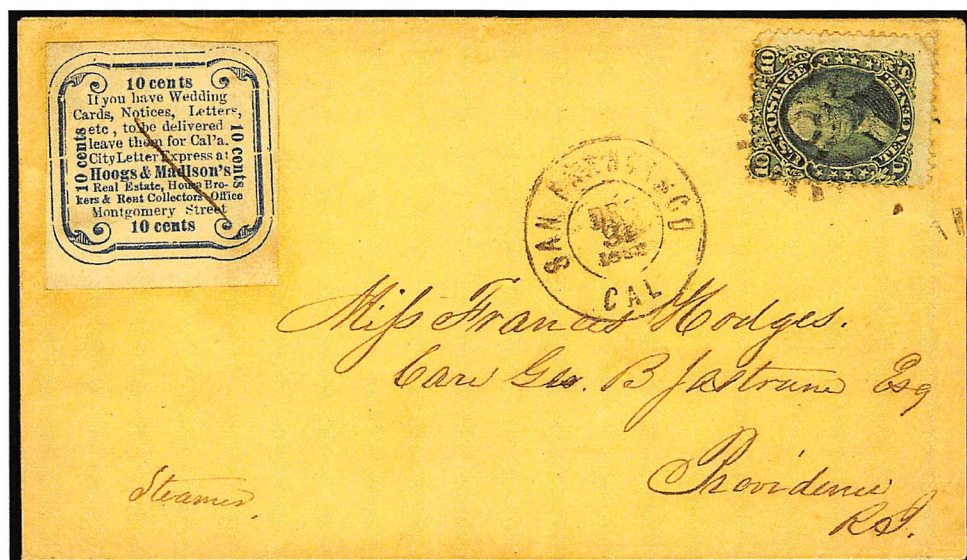 10 cents
If you have Wedding
Cards, Notices, Letters,
etc, to be delivered
leave them for Cal'a.
City Letter Express at
Hoogs & Madison's
Real Estate, House Bro-
kers & Rent Collectors Office
Montgomery Street
10 cents
10 cents
10 cents
U.S. POSTAGE
TEN CENTS
10
10
SAN FRANCISCO
CAL
Miss Frances Hodges.
Care Geo. B
Esq
Providence
R.I.
Steamer.